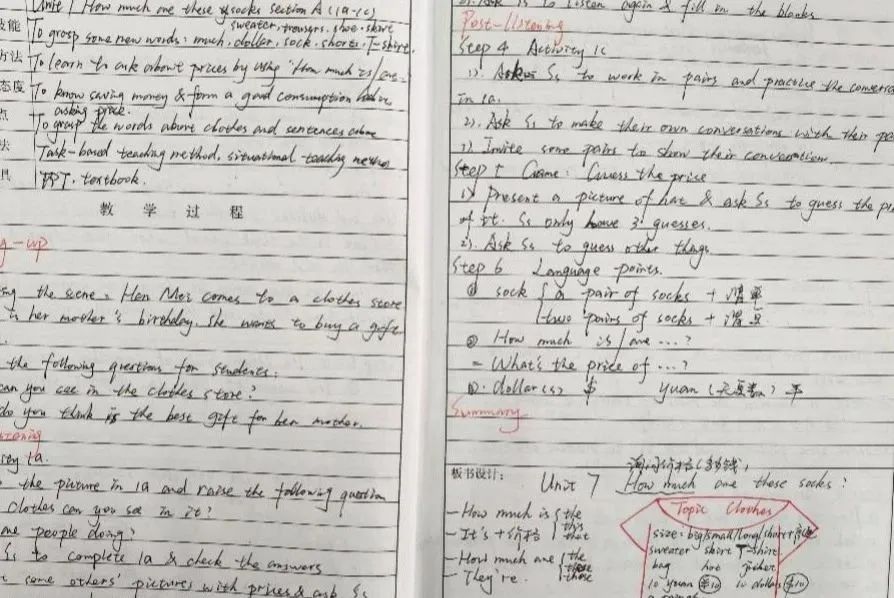 Unit 7 How much are these socks section A (1a-1c)
技能
sweater, trousers, shoe, skirt
To grasp some new words: much, dollar, sock, shorts, T-shirt.
方法
To learn to ask about prices by using "How much is/are
态度
To know saving money & form a good consumption
点
asking price.
To grasp the words about clothes and sentences about
法
Task-based teaching method, situational teaching method
具
PPT, textbook.
教 学 过 程
g-up
the scene: Han Mei comes to a clothes store
is her mother's birthday. She wants to buy a gift
the following questions for students:
can you see in the clothes store?
do you think is the best gift for her mother.
tening
1a.
the picture in 1a and raise the following question
clothes can you see in it?
are people doing?
Ss to complete 1a & check the answers
some others' pictures with prices & ask Ss
to listen again & fill in the blanks
Post-listening
Step 4 Activity 1c
1). Ask Ss to work in pairs and practice the conversa
in 1a.
2). Ask Ss to make their own conversations with their
3) Invite some pairs to show their conversation.
Step 5 Game: Guess the price
1) Present a picture of hat & ask Ss to guess the
of it. Ss only have 3 guesses.
2). Ask Ss to guess other things
Step 6 Language points.
① sock { a pair of socks + 谓单
two pairs of socks + 谓复
② How much is/are ...?
= What's the price of ...?
③. dollar(s) $ yuan (无复数) ¥
Summary
板书设计:
询问价格(多少钱)
Unit 7 How much are these socks?
- How much is { the
this
- It's + 价格 that
- How much are { the
these
- They're. those
Topic Clothes
size: big/small/long/short
sweater short T-shirt
bag hat
10 yuan ¥10 10 dollars $10